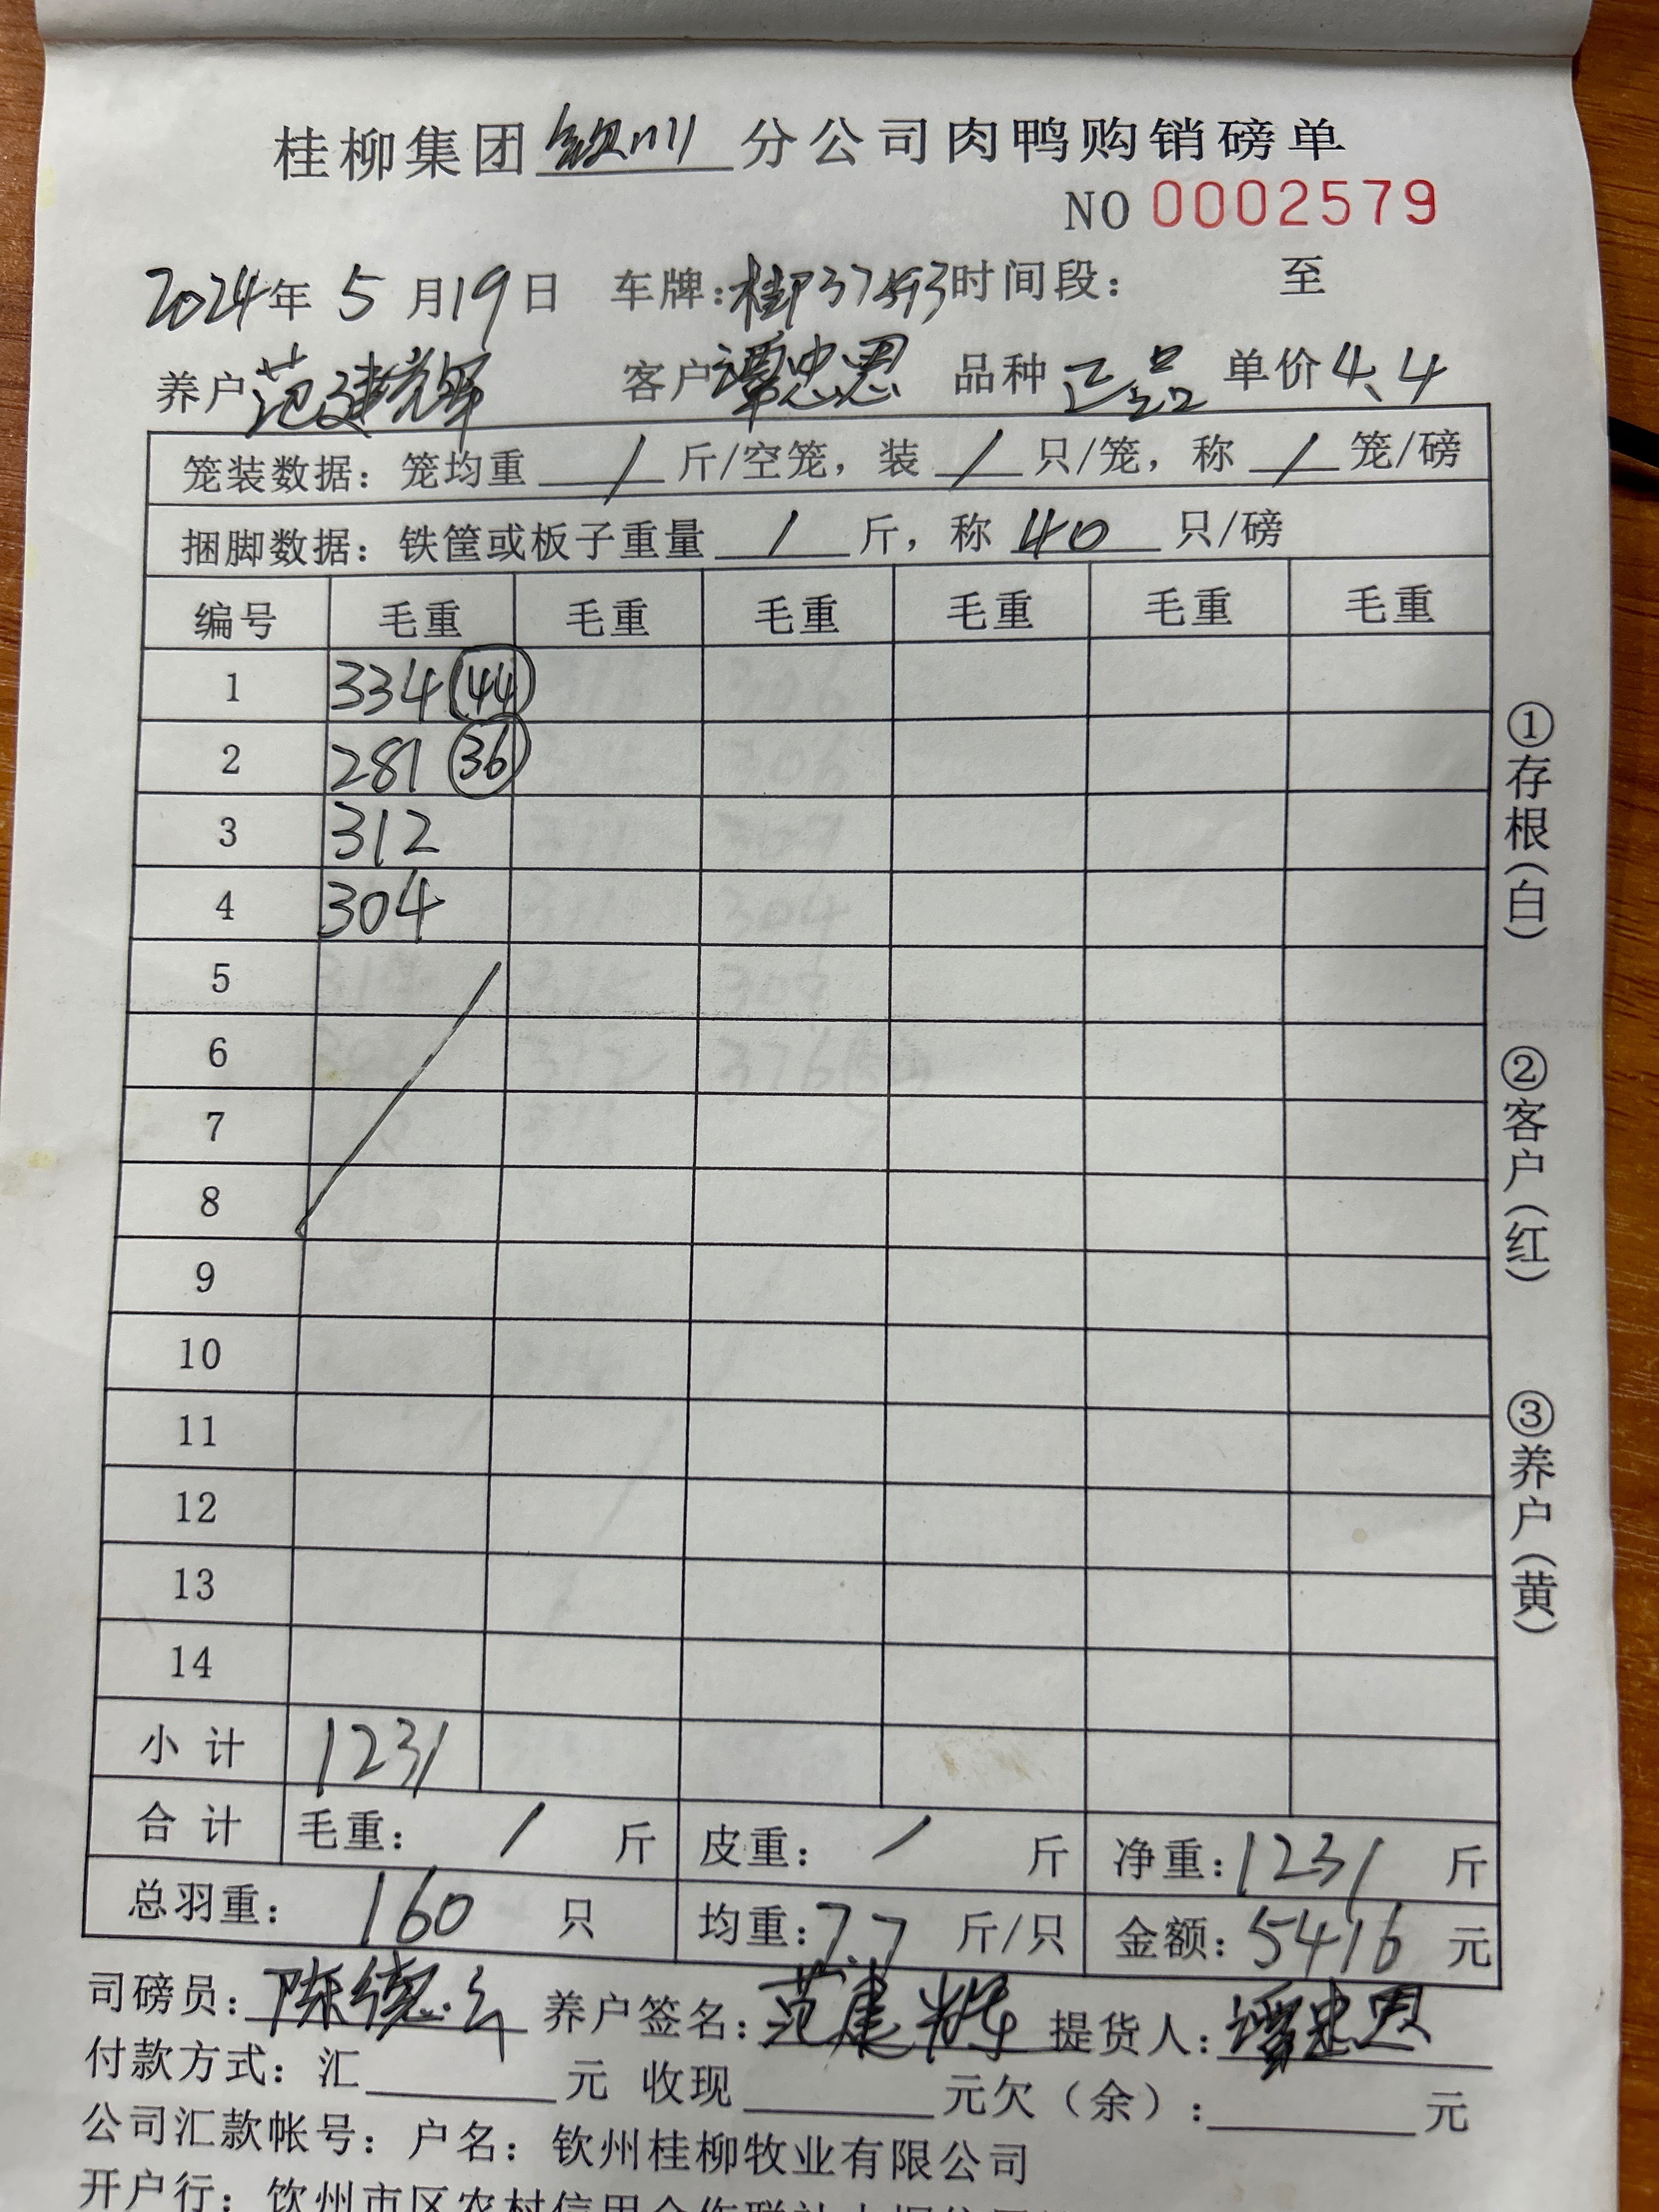 桂柳集团钦州分公司肉鸭购销磅单
NO 0002579
2024年 5 月19日 车牌: 时间段: 至
养户范建辉 客户谭忠恩 品种 正品 单价4.4
笼装数据: 笼均重 / 斤/空笼, 装 / 只/笼, 称 / 笼/磅
捆脚数据: 铁筐或板子重量 / 斤, 称 40 只/磅
编号 毛重 毛重 毛重 毛重 毛重 毛重
1 334 (44)
2 281 (36)
3 312
4 304
5
6
7
8
9
10
11
12
13
14
小计 1231
合计 毛重: / 斤 皮重: / 斤 净重:1231 斤
总羽重: 160 只 均重:7.7 斤/只 金额: 5416 元
司磅员: 养户签名:范建辉 提货人:谭忠恩
付款方式: 汇 元 收现 元欠(余): 元
公司汇款帐号: 户名: 钦州桂柳牧业有限公司
开户行: 钦州市区农村信用合作联社
①存根(白)
②客户(红)
③养户(黄)